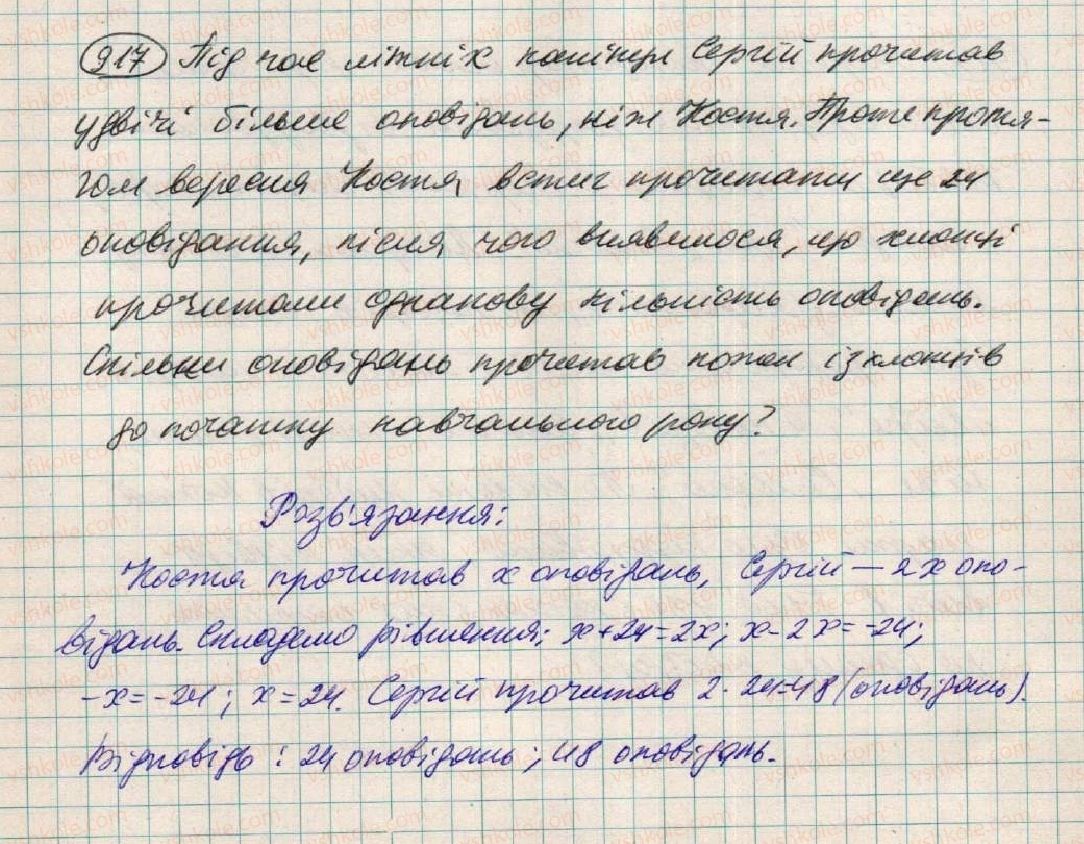 917 Під час літніх канікул Сергій прочитав
удвічі більше оповідань, ніж Костя. Проте протя-
гом вересня Костя встиг прочитати ще 24
оповідання, після чого виявилося, що хлопці
прочитали однакову кількість оповідань.
Скільки оповідань прочитав кожен із хлопців
до початку навчального року?
Розв'язання:
Костя прочитав x оповідань, Сергій — 2x опо-
відань. Складемо рівняння: x+24=2x; x-2x=-24;
-x=-24; x=24. Сергій прочитав 2·24=48 (оповідань).
Відповідь: 24 оповідань; 48 оповідань.